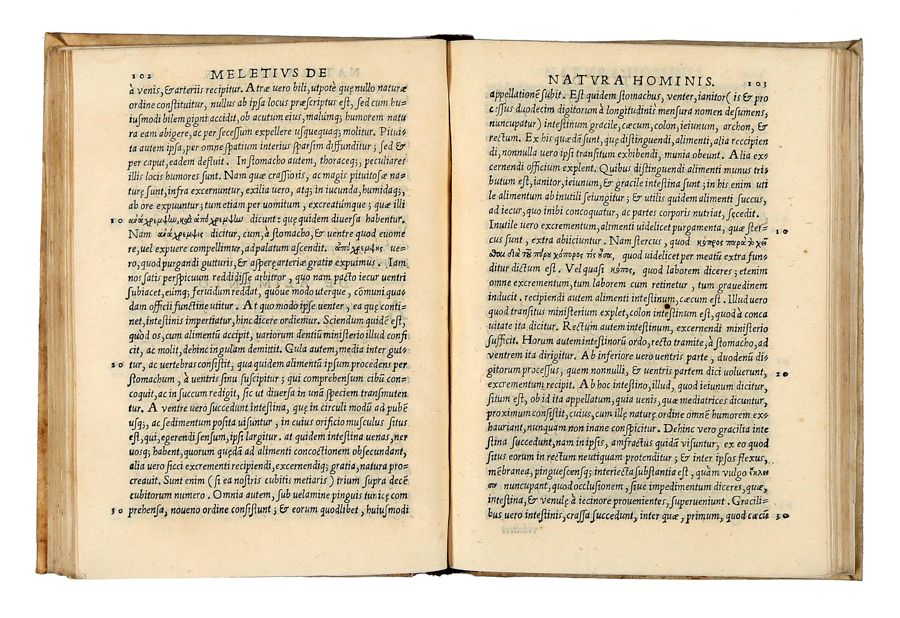 102 MELETIVS DE
à venis, & arterijs recipitur. Atræ uero bili, utpote quę nullo naturæ
ordine constituitur, nullus ab ipsa locus præscriptus est, sed cum hu
iusmodi bilem gigni accidit, ob acutum eius, malumq; humorem natu
ra eam abigere, ac per secessum expellere usquequaq; molitur. Pituis
ta autem ipsa, per omne spatium interius sparsim diffunditur; sed &
per caput, eadem defluit. In stomacho autem, thoraceq;, peculiares
illis locus humores sunt. Nam quæ crassioris, ac magis pituitosæ na=
turę sunt, infra excernuntur, exilia uero, atq; in iucunda, humidaq;,
ab ore expuuntur; tum etiam per uomitum, excreatumque; quæ illi
10 ἀνάχρεμψιν, καὶ ἀπόχρεμψιν dicunt: quę quidem diuersa habentur.
Nam ἀνάχρεμψις dicitur, cum, à stomacho, & uentre quod euome
re, uel expuere compellimur, ad palatum ascendit. ἀπόχρεμψις ue=
ro, quod purgandi gutturis, & asperę arteriæ gratia expuimus. Iam
nos satis perspicuum reddidisse arbitror, quo nam pacto iecur uentri
subiaceat, eumq; feruidum reddat, quóue modo uterque, cōmuni quo
dam officij functine utitur. At quo modo ipse uenter, ea quę conti=
net, intestinis impertiatur, hinc dicere ordiemur. Sciendum quidē est,
quòd os, cum alimentū accipit, uariorum dentiū ministerio illud confi
cit, ac molit, dehinc in gulam demittit. Gula autem, media inter gutta
20 tur, ac uertebras consistit, qua quidem alimentū ipsum procedens per
stomachum, à uentris sinu suscipitur; qui comprehensum cibū con=
coquit, ac in succum redigit, sic ut diuersa in unā speciem transmuten
tur. A uentre uero succedunt intestina, quę in circuli modū ad pubē
usq;, ac sedimentum posita uisuntur, in cuius orificio musculus situs
est, qui, egerendi sensum, ipsi largitur. at quidem intestina uenas, ner
uosq; habent, quorum quędā ad alimenti concoctionem obsecundant,
alia uero sicci excrementi recipiendi, excernendiq; gratia, natura pro=
creauit. Sunt enim (si ea nostris cubitis metiaris) trium supra decē
cubitorum numero. Omnia autem, sub uelamine pinguis tunicę com
30 prehensa, noueno ordine consistunt; & eorum quodlibet, huiusmodi
NATVRA HOMINIS. 103
appellationē subit. Est quidem stomachus, uenter, ianitor (is & pro
cessus duodecim digitorum à longitudinis mensura nomen desumens,
nuncupatur) intestinum gracile, cæcum, colon, ieiunum, archon, &
rectum. Ex his quædā sunt, quę distinguendi, alimenti, alia recipien
di, nonnulla uero ipsi transitum exhibendi, munia obeunt. Alia ex=
cernendi officium explent. Quibus distinguendi alimenti munus tri=
butum est, ianitor, ieiunum, & gracile intestina sunt; in his enim uti
le alimentum ab inutili seiungitur; & utilis quidem alimenti succus,
ad iecur, quo inibi concoquatur, ac partes corporis nutriat, secedit.
Inutile uero excrementum, alimenti uidelicet purgamenta, quæ ster=
cus sunt, extra abijciuntur. Nam stercus, quod κόπρος παρὰ τὸ χω 10
quod uidelicet per meatū extra fun=
ditur dictum est. Vel quasi κόπος, quod laborem diceres; etenim
omne excrementum, tum laborem cum retinetur, tum grauedinem
inducit. recipiendi autem alimenti intestinum, cæcum est. Illud uero
quod transitus ministerium explet, colon intestinum est, quod à conca
uitate ita dicitur. Rectum autem intestinum, excernendi ministerio
sufficit. Horum autem intestinorū ordo, recto tramite, à stomacho, ad
uentrem ita dirigitur. Ab inferiore uero uentris parte, duodenū di=
gitorum processus, quem nonnulli, & uentris partem dici uoluerunt,
excrementum recipit. Ab hoc intestino, illud, quod ieiunum dicitur, 20
situm est, ob id ita appellatum, quia uenis, quæ mediatrices dicuntur,
proximum consistit, cuius, cum illę naturę ordine omnē humorem ex=
hauriant, nunquam non inane conspicitur. Dehinc uero gracilia inte
stina succedunt, nam in ipsis, amfractus quidā uisuntur, ex eo quod
situs eorum in rectum neutiquam protenditur; & inter ipsos flexus,
mēbranea, pinguescensq; interiecta substantia est, quàm uulgo
nuncupant, quod occlusionem, siue impedimentum diceres, quæ,
intestina, & uenulę à iecinore prouenientes, superueniunt. Gracili=
bus uero intestinis, crassa succedunt, inter quæ, primum, quod cæcū 30